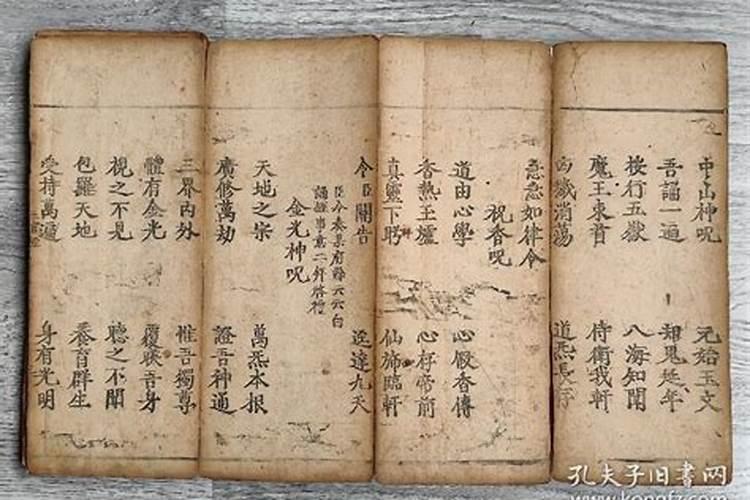 中山神呪 元始玉文
吾誦一遍 却鬼延年
按行五嶽 八海知聞
魔王束首 侍衛我軒
凶穢消蕩 道炁長存
急急如律令
祝香呪
道由心學 心假香傳
香熱玉爐 心存帝前
真靈下盻 仙旆臨軒
令臣關告 逕達九天
臣今奏某府縣云云白
金光神呪
天地之宗 萬炁本根
廣修萬劫 證吾神通
三界內外 惟吾獨尊
體有金光 覆暎吾身
視之不見 聽之不聞
包羅天地 養育群生
受持萬遍 身有光明
孔夫子旧書网
www.kongfz.com